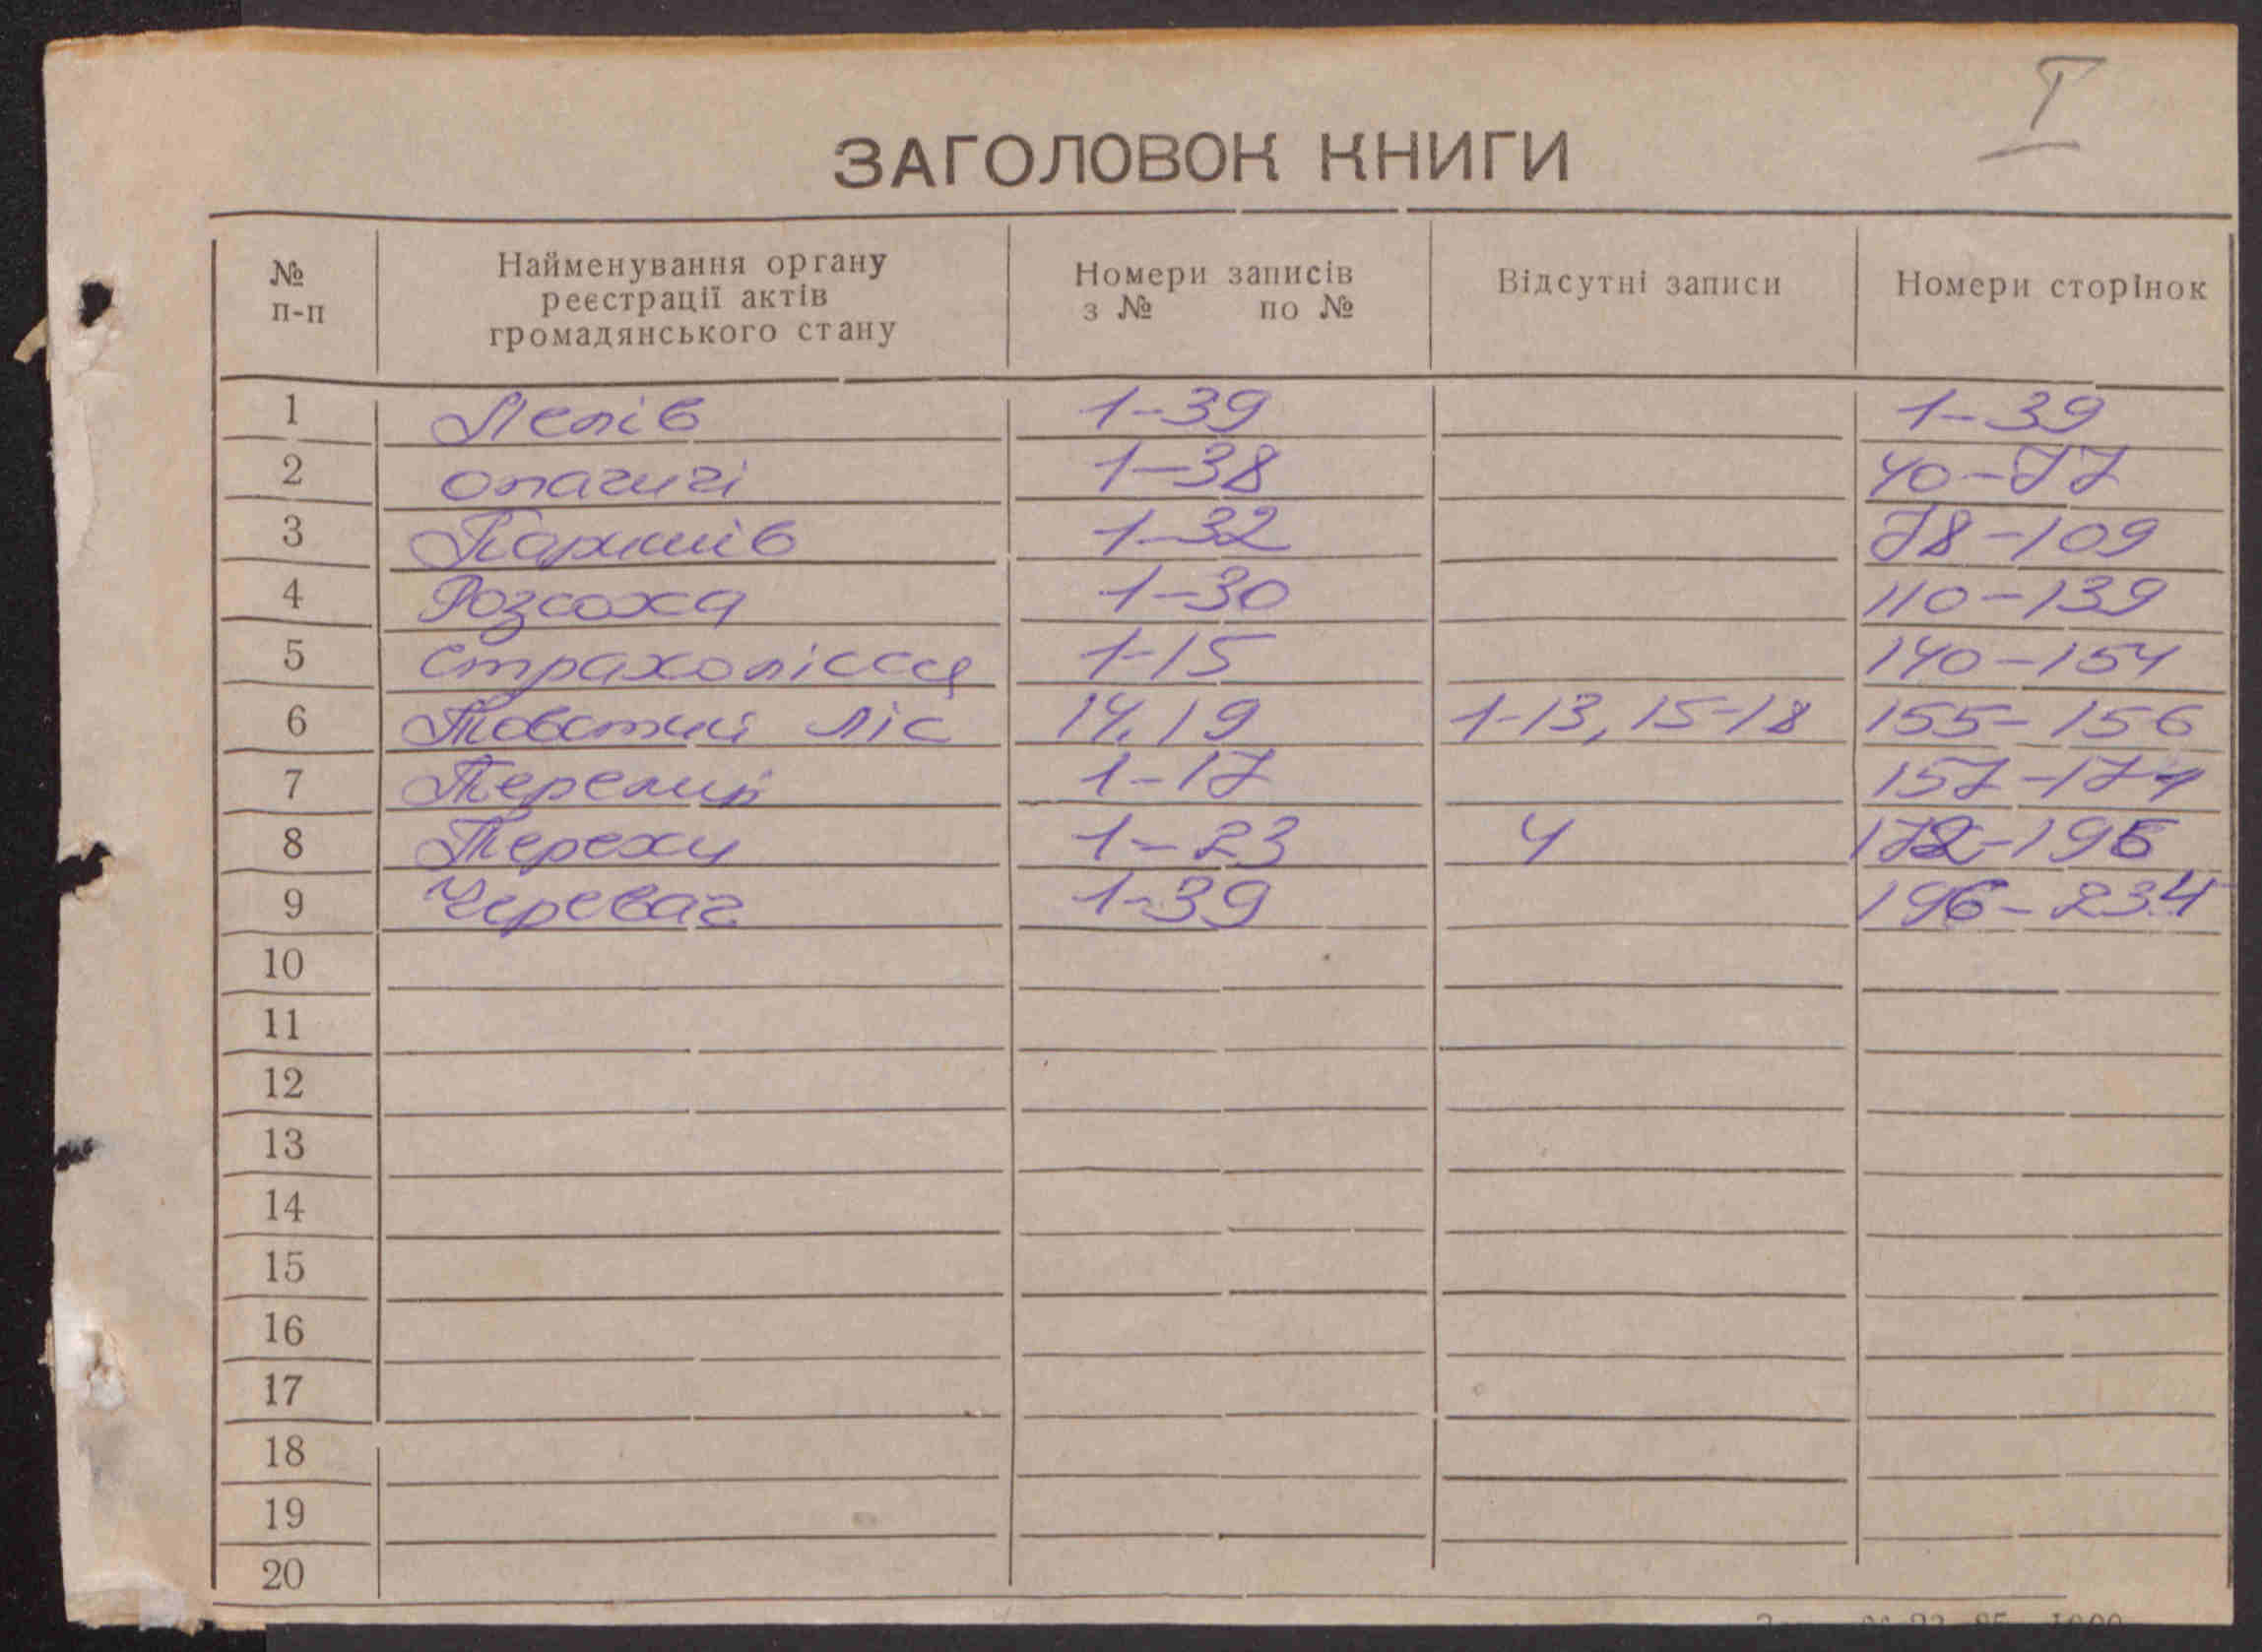 I
ЗАГОЛОВОК КНИГИ
№ п-п Найменування органу реєстрації актів громадянського стану Номери записів з № по № Відсутні записи Номери сторінок
1 Лелів 1-39 1-39
2 опачичі 1-38 40-77
3 Паришів 1-32 78-109
4 Розсоха 1-30 110-139
5 страхолісся 1-15 140-154
6 Товстий ліс 14.19 1-13, 15-18 155-156
7 Теремці 1-17
8 Терехи 1-23 4
9 Черевач 1-39 196-234
10
11
12
13
14
15
16
17
18
19
20